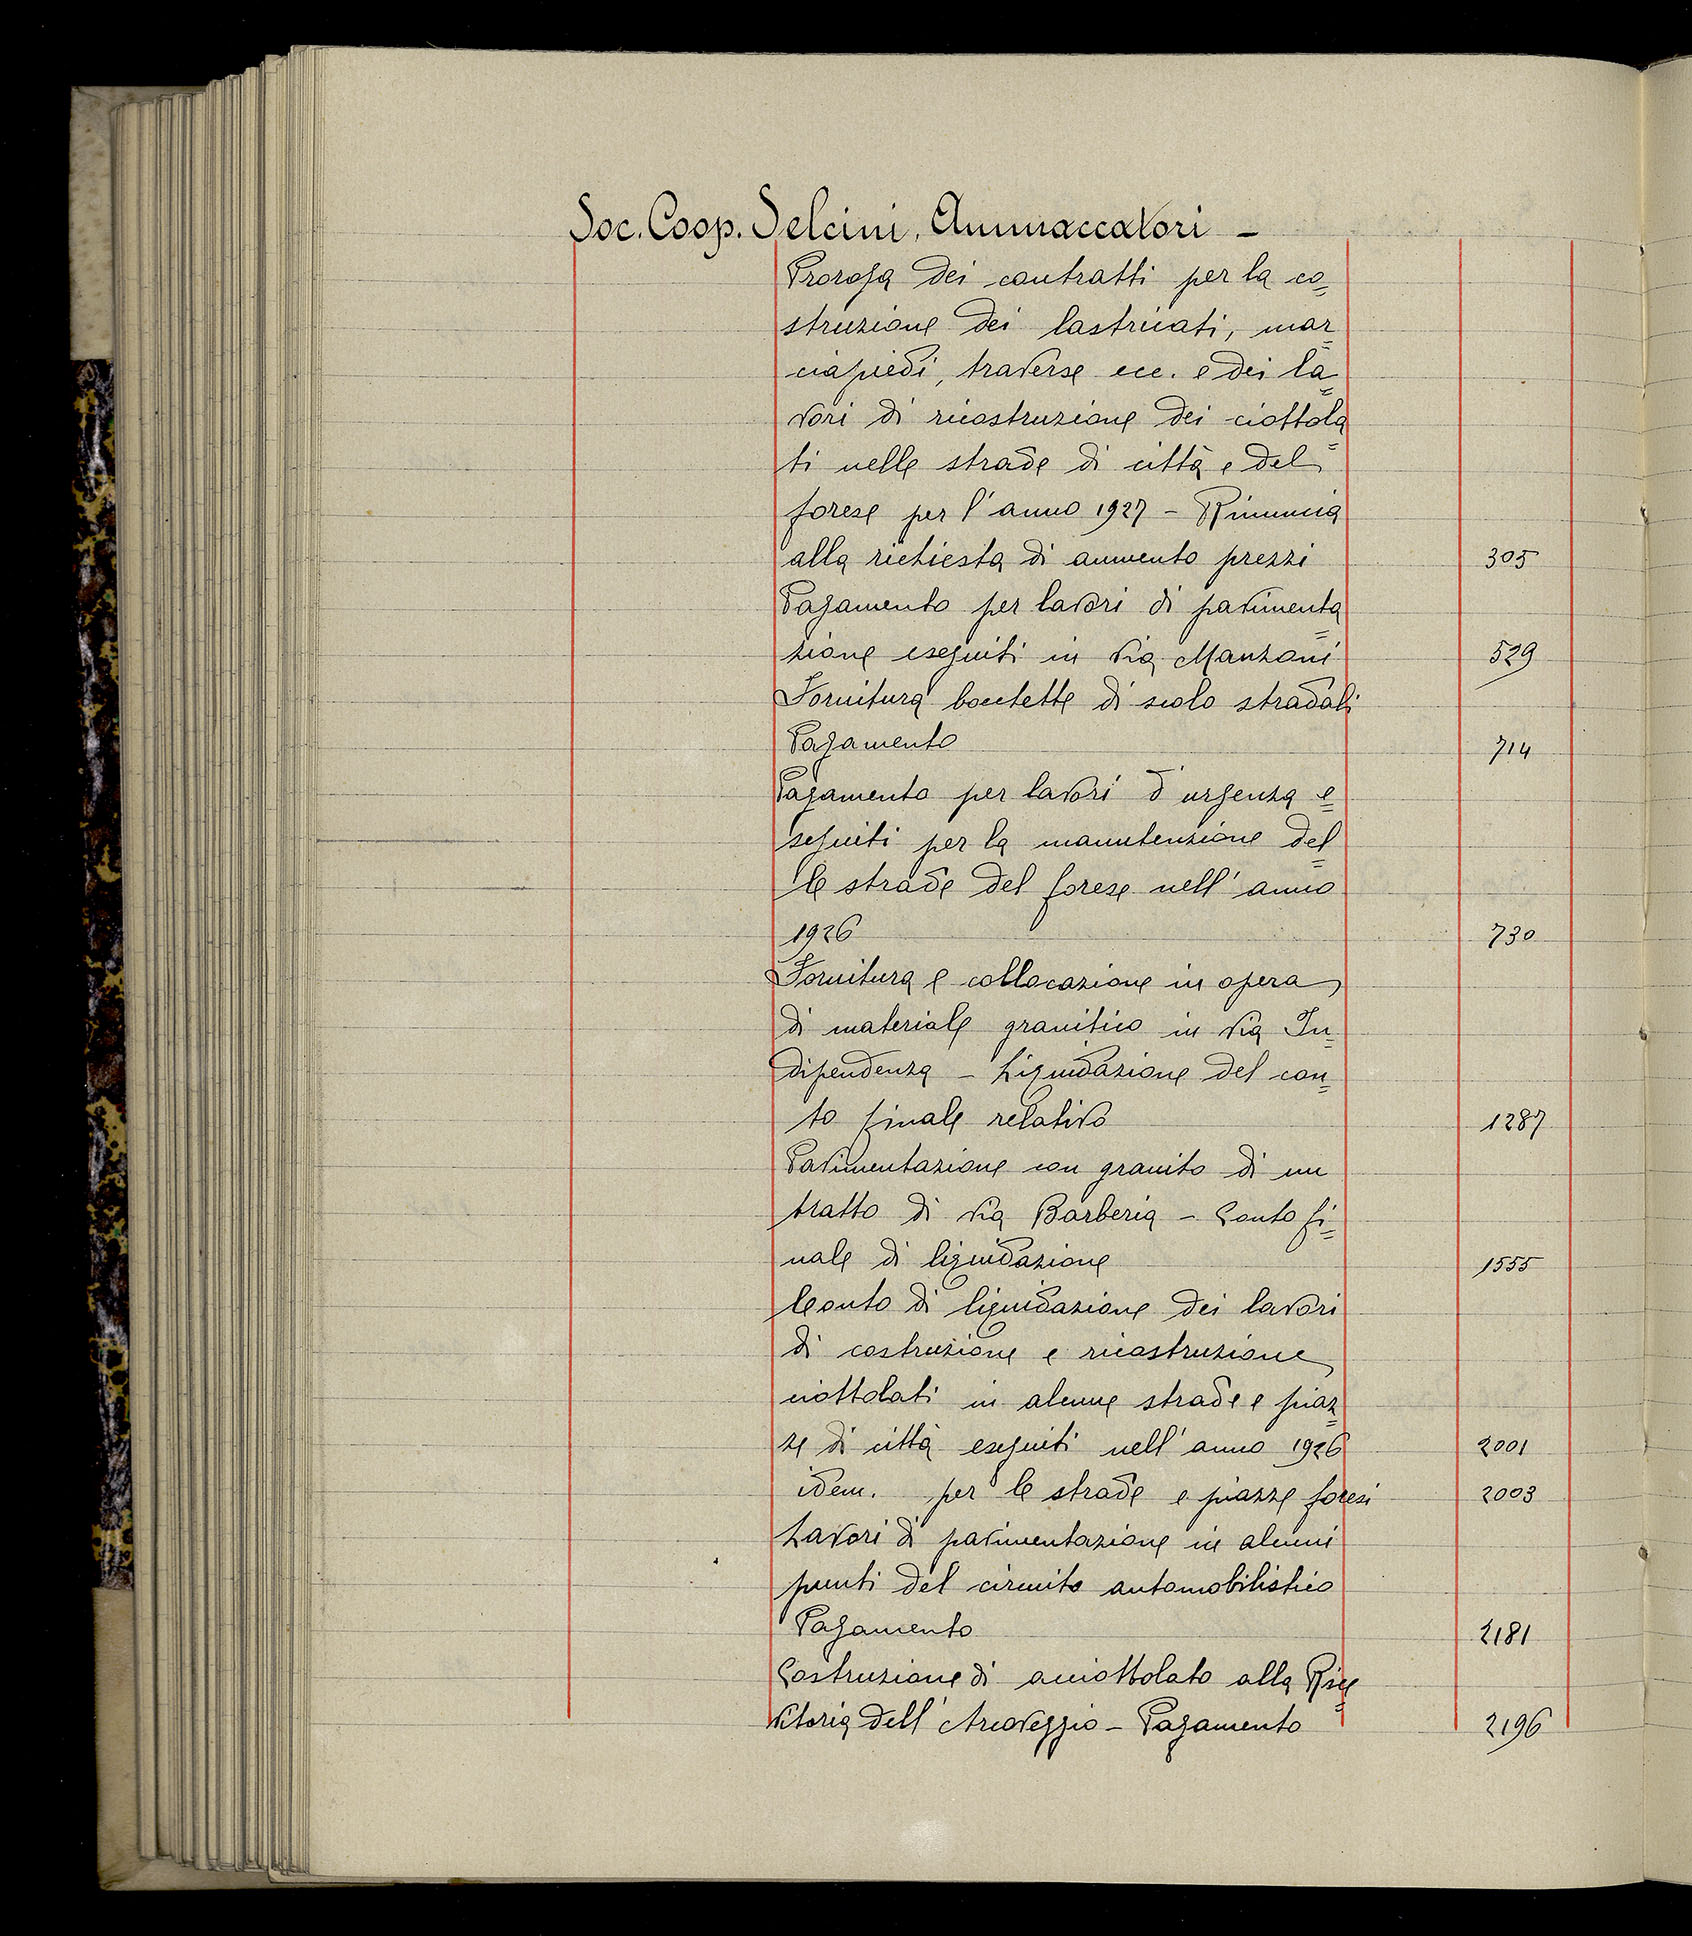 Soc. Coop. Selcini, Ammaccatori –
Proroga dei contratti per la co=
struzione dei lastricati, mar=
ciapiedi, traverse ecc. e dei la=
vori di ricostruzione dei ciottola=
ti nelle strade di città e del
forese per l'anno 1927 – Rinuncia
alla richiesta di aumento prezzi 305
Pagamento per lavori di pavimenta=
zione eseguiti in Via Manzoni 529
Fornitura bocchette di scolo stradali
Pagamento 714
Pagamento per lavori d'urgenza e=
seguiti per la manutenzione del=
le strade del forese nell'anno
1926 730
Fornitura e collocazione in opera
di materiale granitico in Via In=
dipendenza – Liquidazione del con=
to finale relativo 1287
Pavimentazione con granito di un
tratto di Via Barberia – Conto fi=
nale di liquidazione 1555
Conto di liquidazione dei lavori
di costruzione e ricostruzione
ciottolati in alcune strade e piaz=
ze di città eseguiti nell'anno 1926 2001
idem. per le strade e piazze foresi 2003
Lavori di pavimentazione in alcuni
punti del circuito automobilistico
Pagamento 2181
Costruzione di acciottolato alla Rice=
vitoria dell'Arcoveggio – Pagamento 2196